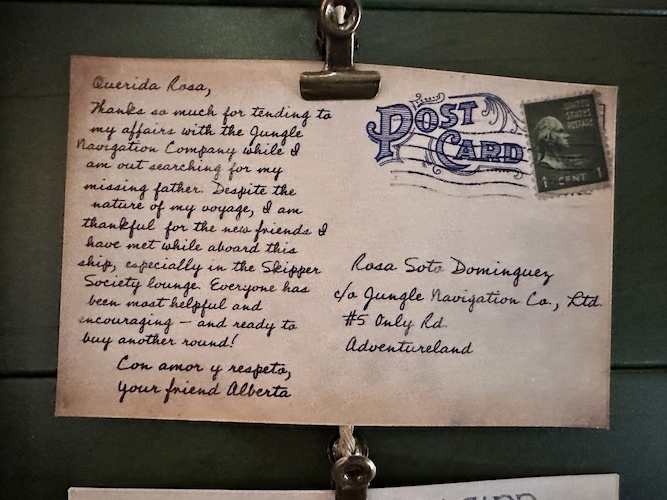 Querida Rosa,
Thanks so much for tending to
my affairs with the Jungle
Navigation Company while I
am out searching for my
missing father. Despite the
nature of my voyage, I am
thankful for the new friends I
have met while aboard this
ship, especially in the Skipper
Society lounge. Everyone has
been most helpful and
encouraging – and ready to
buy another round!
Con amor y respeto,
your friend Alberta
POST
CARD
UNITED
STATES
POSTAGE
1 CENT 1
Rosa Soto Dominguez
c/o Jungle Navigation Co., Ltd.
#5 Only Rd.
Adventureland